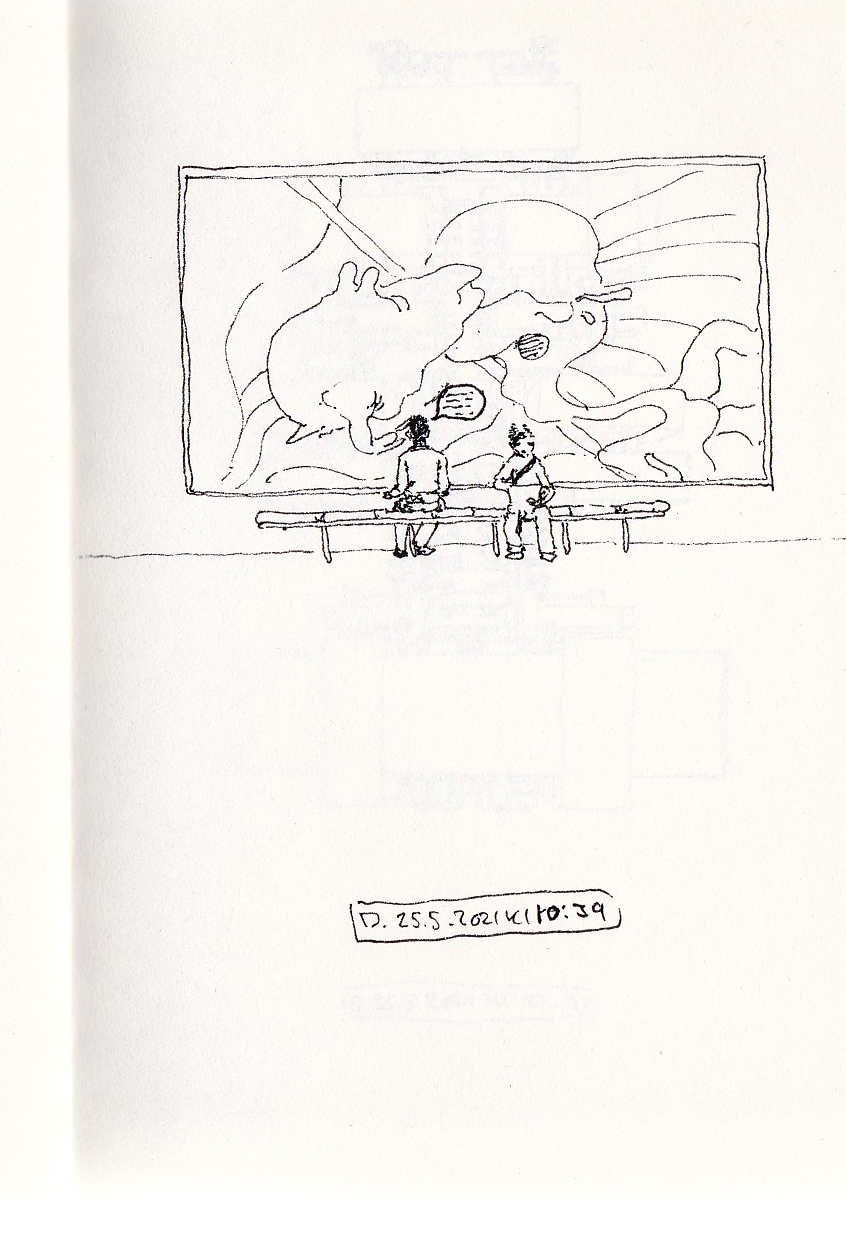 D. 25.5.2021 kl 10:39